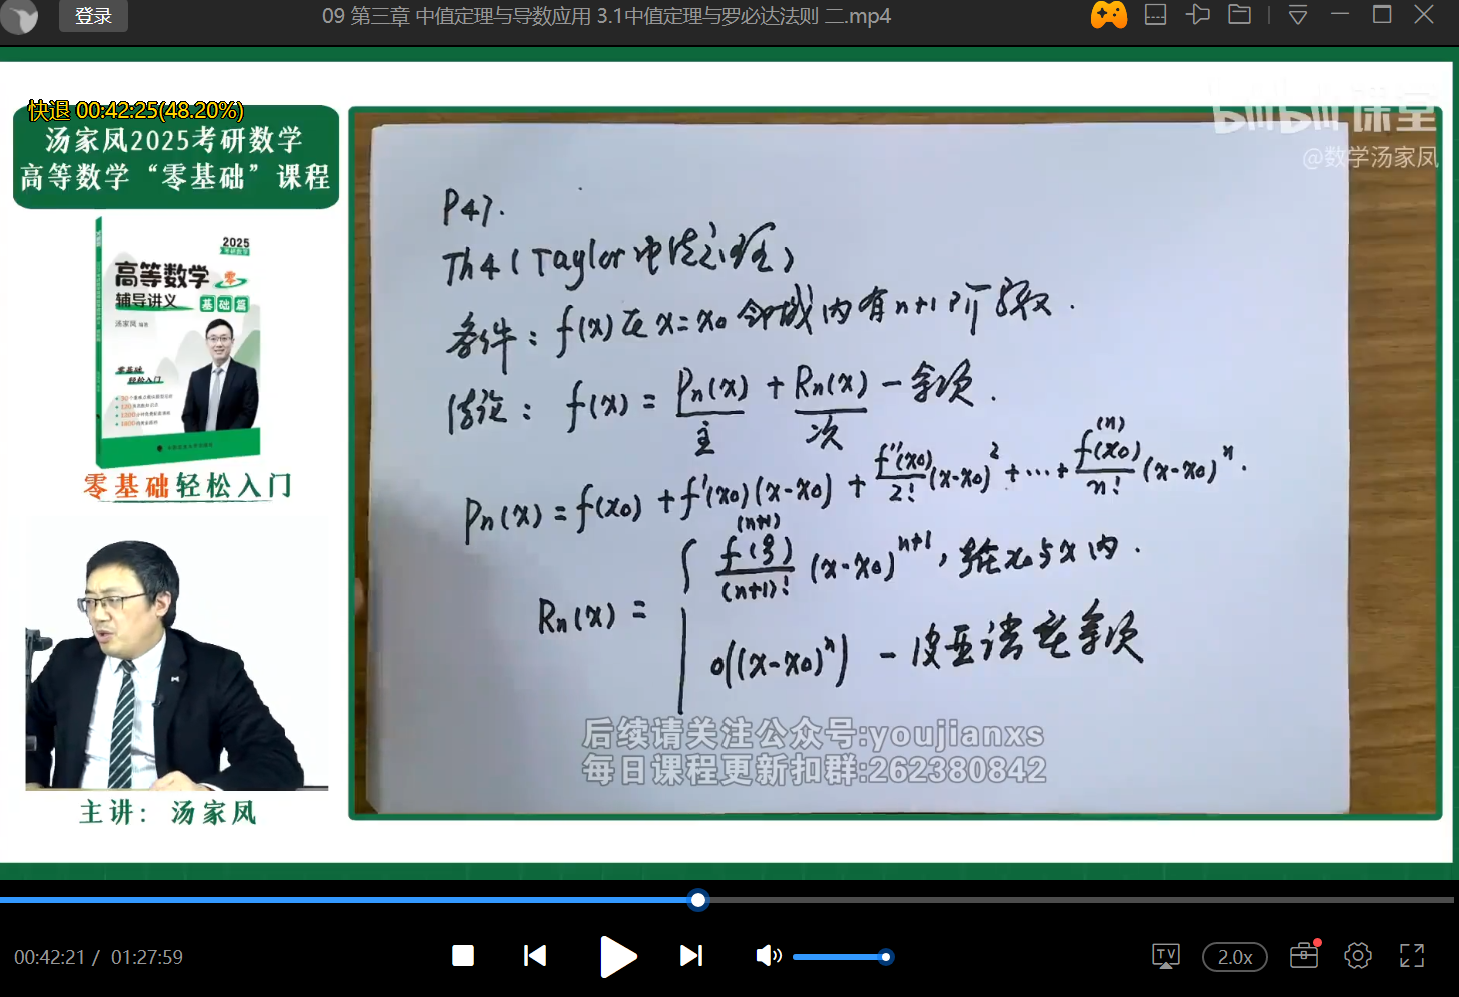 登录
09 第三章 中值定理与导数应用 3.1中值定理与罗必达法则 二.mp4
快退 00:42:25(48.20%)
汤家凤2025考研数学
高等数学“零基础”课程
2025
高等数学 零
辅导讲义 基础篇
汤家凤
零基础
轻松入门
零基础轻松入门
主讲：汤家凤
bilibili课堂
@数学汤家凤
P47.
Th4(Taylor中值定理)
条件：f(x)在x=x₀邻域内有n+1阶导数.
结论：f(x) = Pn(x) + Rn(x) — 余项.
主 次
Pn(x) = f(x₀) + f'(x₀)(x-x₀) + f''(x₀)/2! (x-x₀)² + ⋯ + f⁽ⁿ⁾(x₀)/n! (x-x₀)ⁿ.
Rn(x) = { f⁽ⁿ⁺¹⁾(ξ)/(n+1)! (x-x₀)ⁿ⁺¹, ξ在x₀与x内.
o((x-x₀)ⁿ) — 皮亚诺型余项
后续请关注公众号:youjianxs
每日课程更新扣群:262380842
00:42:21 / 01:27:59
TV
2.0x